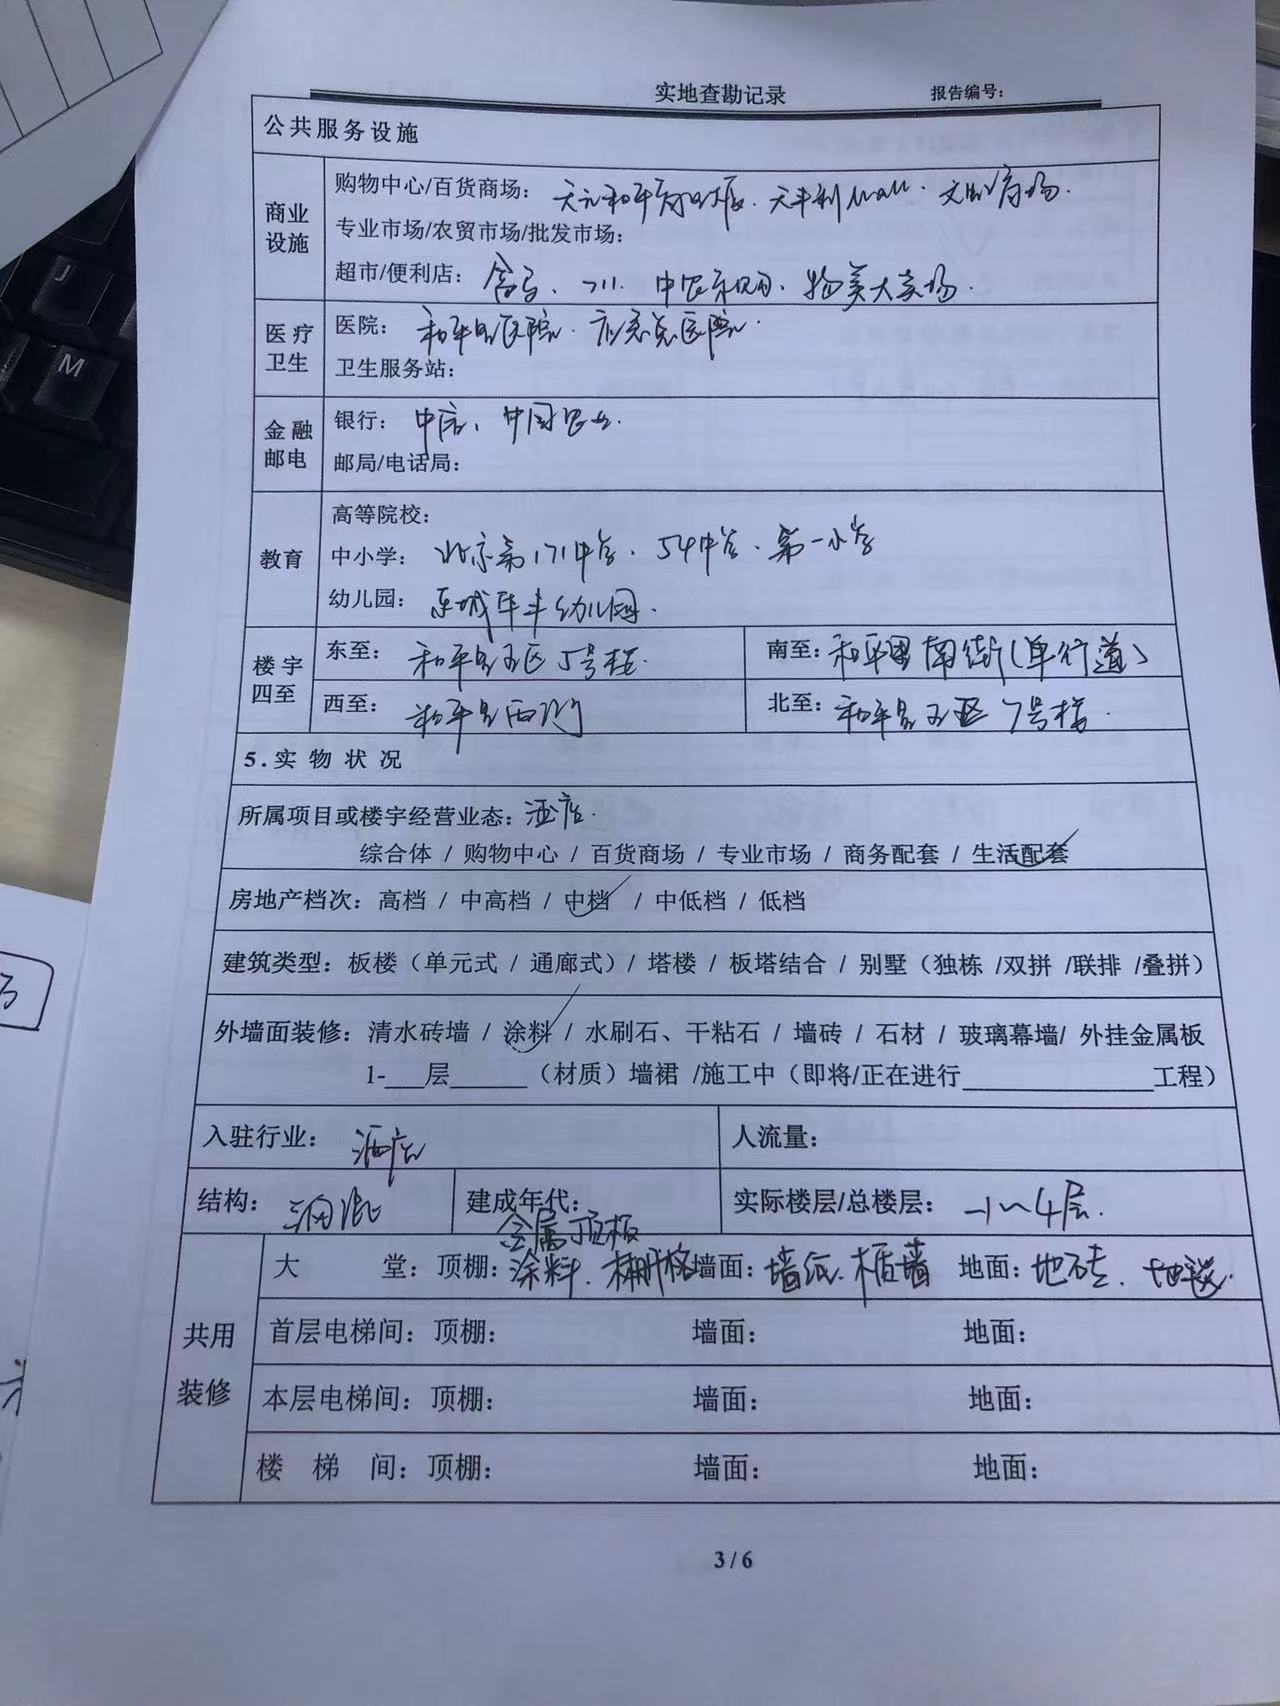 实地查勘记录 报告编号:
公共服务设施
商业设施
购物中心/百货商场: 天元和平商业大厦、天丰利Mall、文 市场.
专业市场/农贸市场/批发市场:
超市/便利店: 7-11. 物美大卖场.
医疗卫生
医院: 和平里医院. 应急总医院.
卫生服务站:
金融邮电
银行: 中国农业.
邮局/电话局:
教育
高等院校:
中小学: 北京第171中学、54中学、第一小学
幼儿园: 东城 幼儿园.
楼宇四至
东至: 和平里五区5号楼. 南至: 和平里南街(单行道)
西至: 和平里西街 北至: 和平里五区7号楼.
5.实物状况
所属项目或楼宇经营业态: 酒店.
综合体 / 购物中心 / 百货商场 / 专业市场 / 商务配套 / 生活配套
房地产档次: 高档 / 中高档 / 中档 / 中低档 / 低档
建筑类型: 板楼（单元式 / 通廊式）/ 塔楼 / 板塔结合 / 别墅（独栋 /双拼 /联排 /叠拼）
外墙面装修: 清水砖墙 / 涂料 / 水刷石、干粘石 / 墙砖 / 石材 / 玻璃幕墙/ 外挂金属板
1-___层______（材质）墙裙 /施工中（即将/正在进行_______________工程）
入驻行业: 酒店 人流量:
结构: 混 建成年代: 实际楼层/总楼层: -1~4层.
共用装修
金属顶板
大 堂: 顶棚: 涂料、栅格 墙面: 墙纸、木质墙 地面: 地砖、地毯.
首层电梯间: 顶棚: 墙面: 地面:
本层电梯间: 顶棚: 墙面: 地面:
楼 梯 间: 顶棚: 墙面: 地面:
3 / 6
J
M